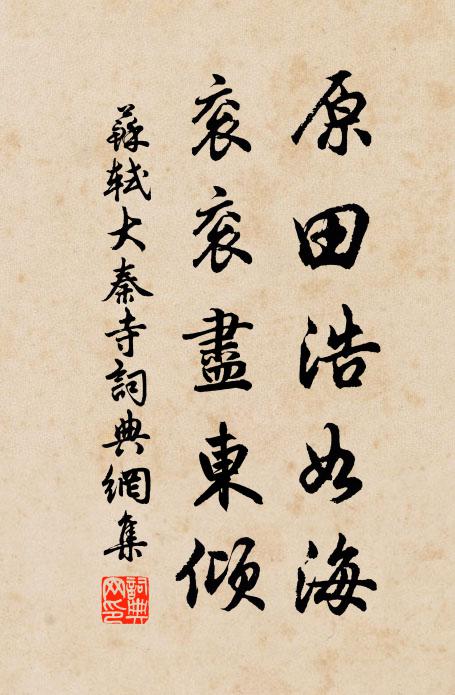 原田浩如海
衮衮盡東傾
蘇軾大秦寺詞典網集
詞典網印